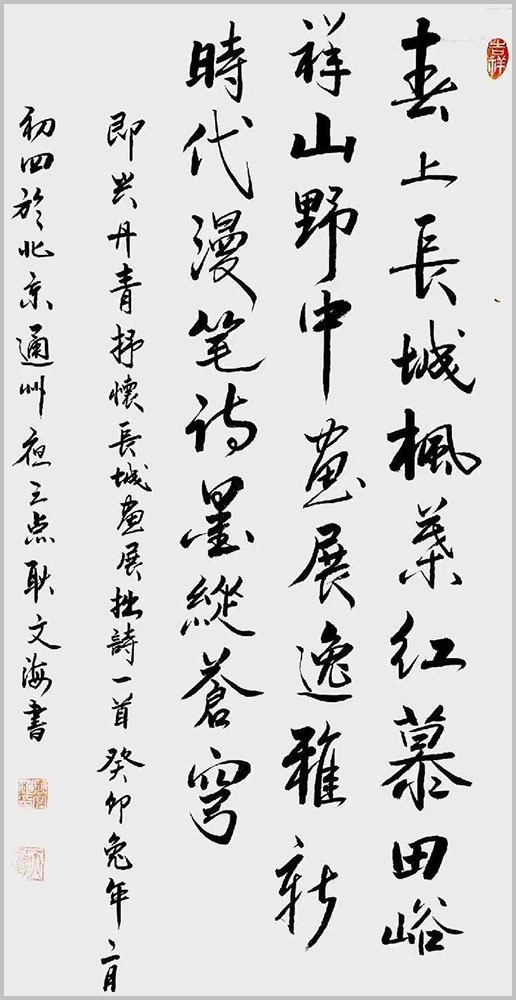 吉祥
春上長城楓葉红慕田峪
祥山野中画展逸雅新
時代漫笔诗墨縱蒼穹
即兴丹青抒懷長城画展拙詩一首癸卯兔年二月
初四於北京通州夜三点耿文海書